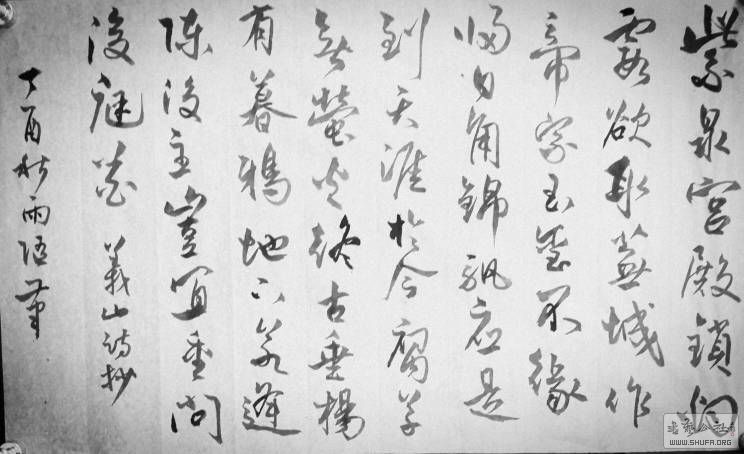 紫泉宮殿鎖烟
霞欲取蕪城作
帝家玉璽不緣
歸日角錦帆应是
到天涯於今腐草
無螢火終古垂楊
有暮鴉地下若逢
陳後主豈宜重問
後庭花 義山詩抄
丁酉秋雨筆
WWW.SHUFA.ORG